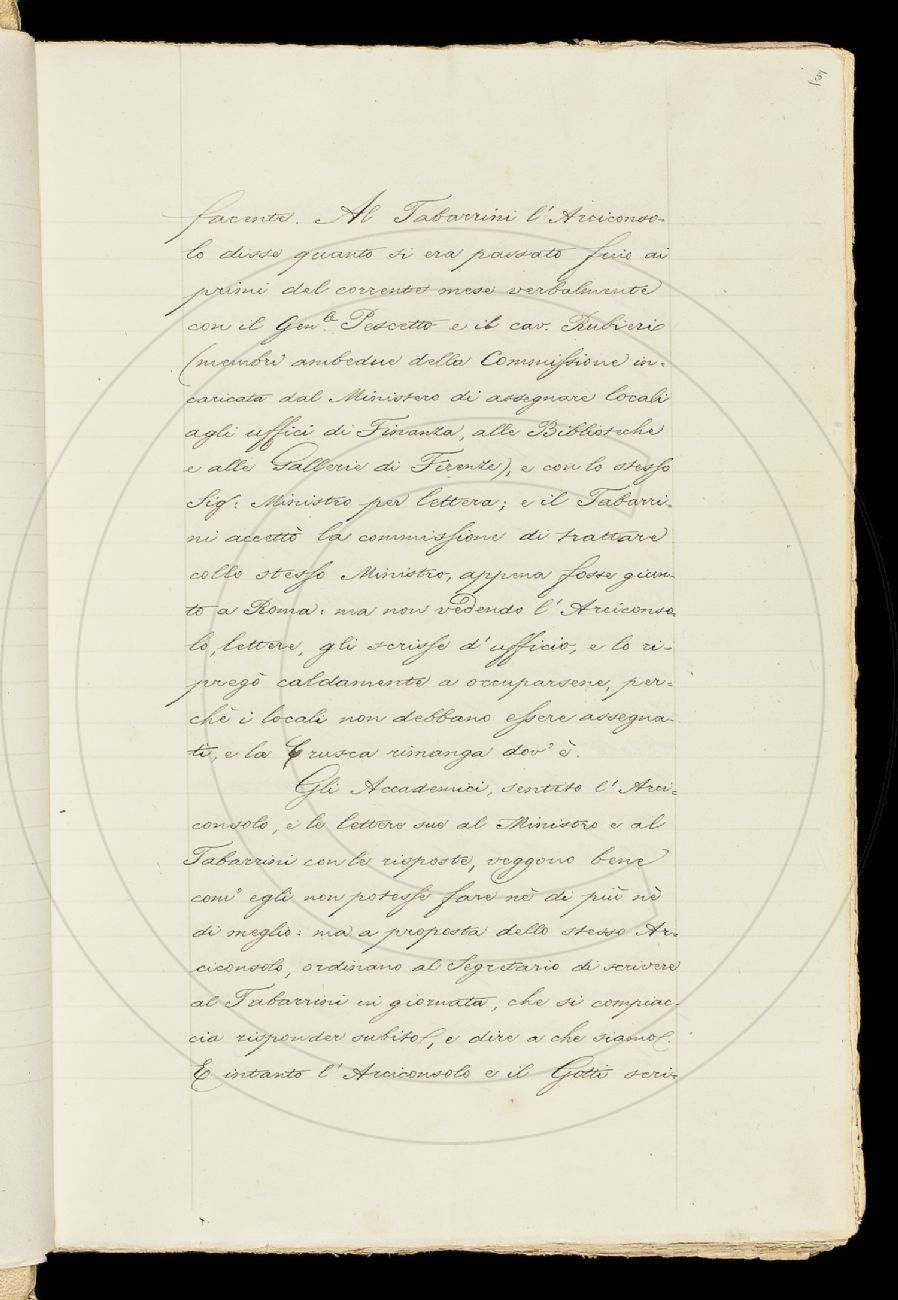 facente. Al Tabarrini l'Arciconso-
lo disse quanto si era passato fino ai
primi del corrente mese verbalmente
con il Gen.le Pescetto e il cav. Rubieri
(membri ambedue della Commissione in-
caricata dal Ministero di assegnare locali
agli uffici di Finanza, alle Biblioteche
e alle Gallerie di Firenze), e con lo stesso
Sig: Ministro per lettera; e il Tabarri-
ni accettò la commissione di trattare
collo stesso Ministro, appena fosse giun-
to a Roma: ma non vedendo l'Arciconso-
lo, lettere, gli scrisse d'ufficio, e lo ri-
pregò caldamente a occuparsene, per-
chè i locali non debbano essere assegna-
ti, e la Crusca rimanga dov'è.
Gli Accademici, sentito l'Arci-
consolo, e le lettere sue al Ministro e al
Tabarrini con le risposte, veggono bene
com' egli non potesse fare nè di più nè
di meglio: ma a proposta dello stesso Ar-
ciconsolo, ordinano al Segretario di scrivere
al Tabarrini in giornata, che si compiac-
cia risponder subito, e dire a che siamo.
E intanto l'Arciconsolo e il Gotti scri-